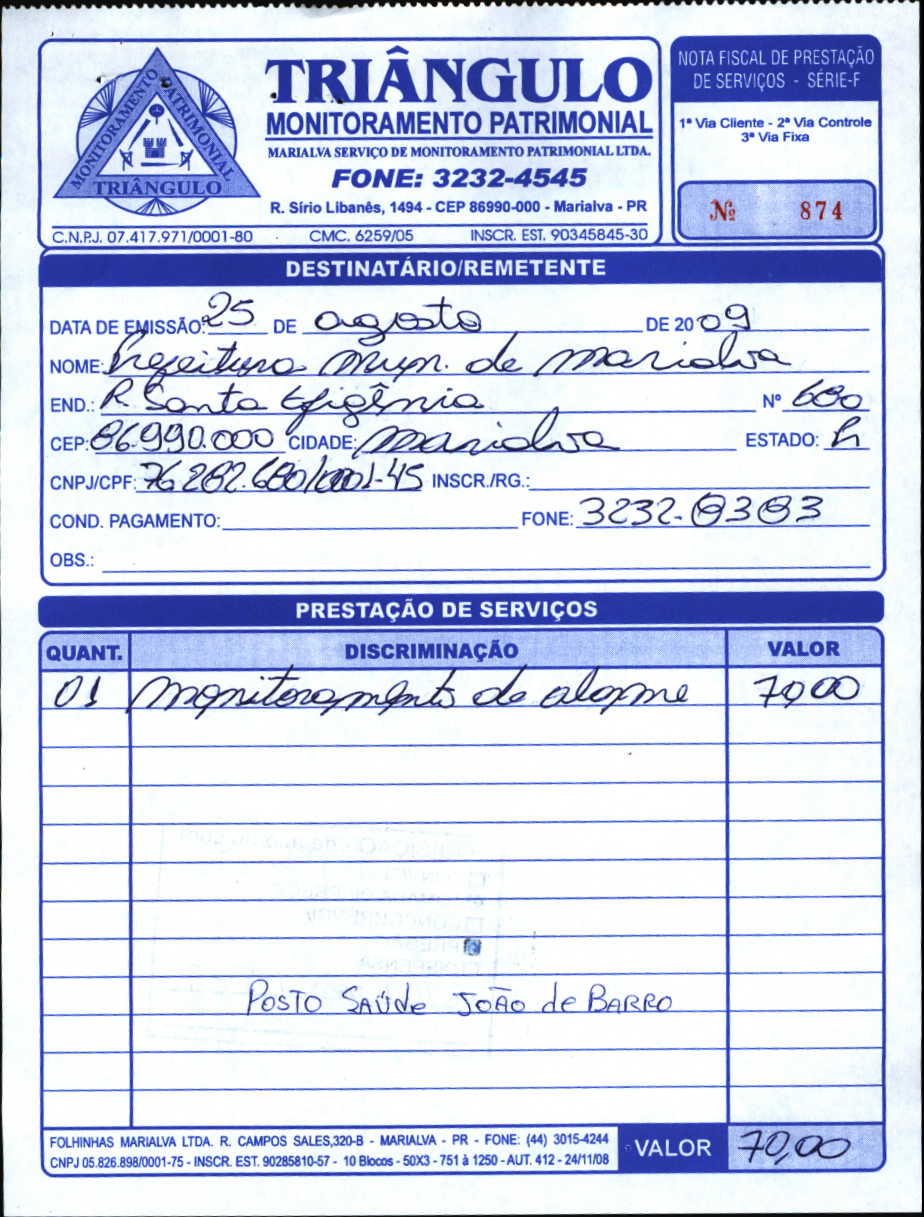 MONITORAMENTO PATRIMONIAL
TRIÂNGULO
TRIÂNGULO
MONITORAMENTO PATRIMONIAL
MARIALVA SERVIÇO DE MONITORAMENTO PATRIMONIAL LTDA.
FONE: 3232-4545
R. Sírio Libanês, 1494 - CEP 86990-000 - Marialva - PR
C.N.P.J. 07.417.971/0001-80 CMC. 6259/05 INSCR. EST. 90345845-30
NOTA FISCAL DE PRESTAÇÃO
DE SERVIÇOS - SÉRIE-F
1ª Via Cliente - 2ª Via Controle
3ª Via Fixa
Nº 874
DESTINATÁRIO/REMETENTE
DATA DE EMISSÃO: 25 DE agosto DE 2009
NOME: Prefeitura Mun. de Marialva
END.: R. Santa Efigênia Nº 680
CEP: 86.990.000 CIDADE: Marialva ESTADO: Pr
CNPJ/CPF: 76.282.680/0001-45 INSCR./RG.:
COND. PAGAMENTO: FONE: 3232-8383
OBS.:
PRESTAÇÃO DE SERVIÇOS
QUANT. DISCRIMINAÇÃO VALOR
01 Monitoramento de alarme 70,00
POSTO SAÚde JOÃO de BARRO
FOLHINHAS MARIALVA LTDA. R. CAMPOS SALES,320-B - MARIALVA - PR - FONE: (44) 3015-4244
CNPJ 05.826.898/0001-75 - INSCR. EST. 90285810-57 - 10 Blocos - 50X3 - 751 à 1250 - AUT. 412 - 24/11/08
VALOR 70,00